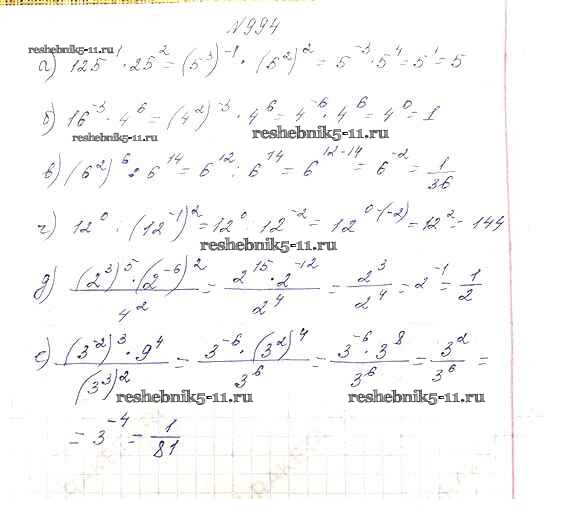 №994
reshebnik5-11.ru
а) 125⁻¹ · 25² = (5³)⁻¹ · (5²)² = 5⁻³ · 5⁴ = 5¹ = 5
б) 16⁻³ · 4⁶ = (4²)⁻³ · 4⁶ = 4⁻⁶ · 4⁶ = 4⁰ = 1
reshebnik5-11.ru reshebnik5-11.ru
в) (6²)⁶ : 6¹⁴ = 6¹² : 6¹⁴ = 6¹²⁻¹⁴ = 6⁻² = 1/36
г) 12⁰ : (12⁻¹)² = 12⁰ : 12⁻² = 12⁰⁻⁽⁻²⁾ = 12² = 144
reshebnik5-11.ru
д) (2³)⁵ · (2⁻⁶)² / 4² = 2¹⁵ · 2⁻¹² / 2⁴ = 2³ / 2⁴ = 2⁻¹ = 1/2
е) (3⁻²)³ · 9⁴ / (3³)² = 3⁻⁶ · (3²)⁴ / 3⁶ = 3⁻⁶ · 3⁸ / 3⁶ = 3² / 3⁶ =
reshebnik5-11.ru reshebnik5-11.ru
= 3⁻⁴ = 1/81
reshebnik5-11.ru